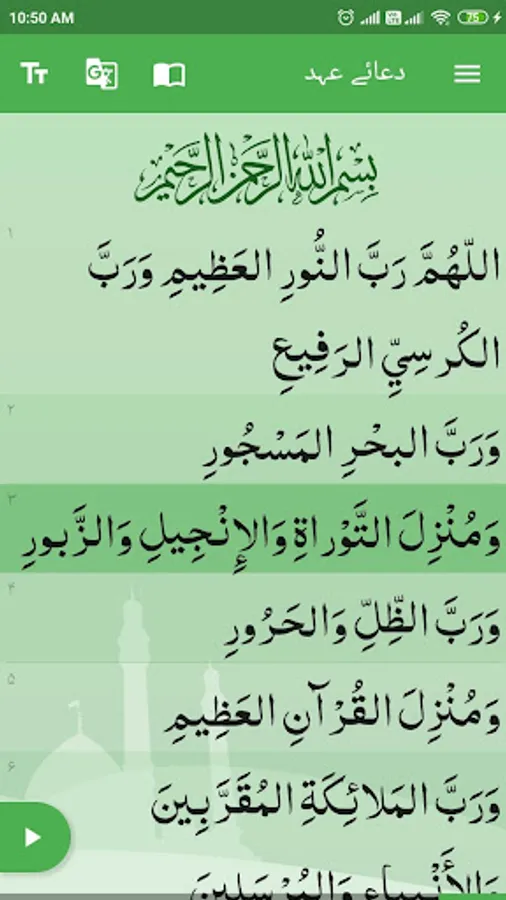 10:50 AM
75
دعائے عہد
بِسْمِ اللهِ الرَّحْمنِ الرَّحِيمِ
١
اللّهُمَّ رَبَّ النُّورِ العَظِيمِ وَرَبَّ
الكُرسِيِّ الرَفِيعِ
٢
وَرَبَّ البحْرِ المَسْجُورِ
٣
وَمُنْزِلَ التَّوْراةِ وَالإِنْجِيلِ وَالزَّبورِ
۴
وَرَبَّ الظِّلِّ وَالحَرُورِ
۵
وَمُنْزِلَ القُرْآنِ العَظِيمِ
۶
وَرَبَّ المَلائِكَةِ المُقَرَّبِينَ
وَالأَنْبِياءِ وَالمُرْسَلِينَ